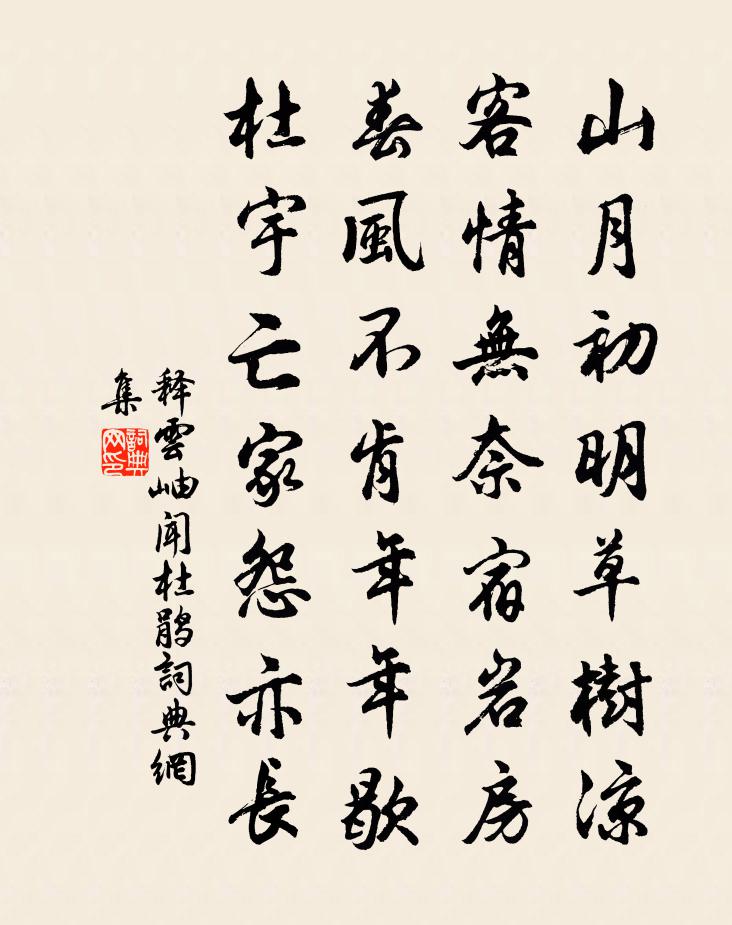 山月初明草樹涼
客情無奈宿岩房
春風不肯年年歇
杜宇亡家怨亦長
释雲岫闻杜鹃詞典網
集
詞典網印